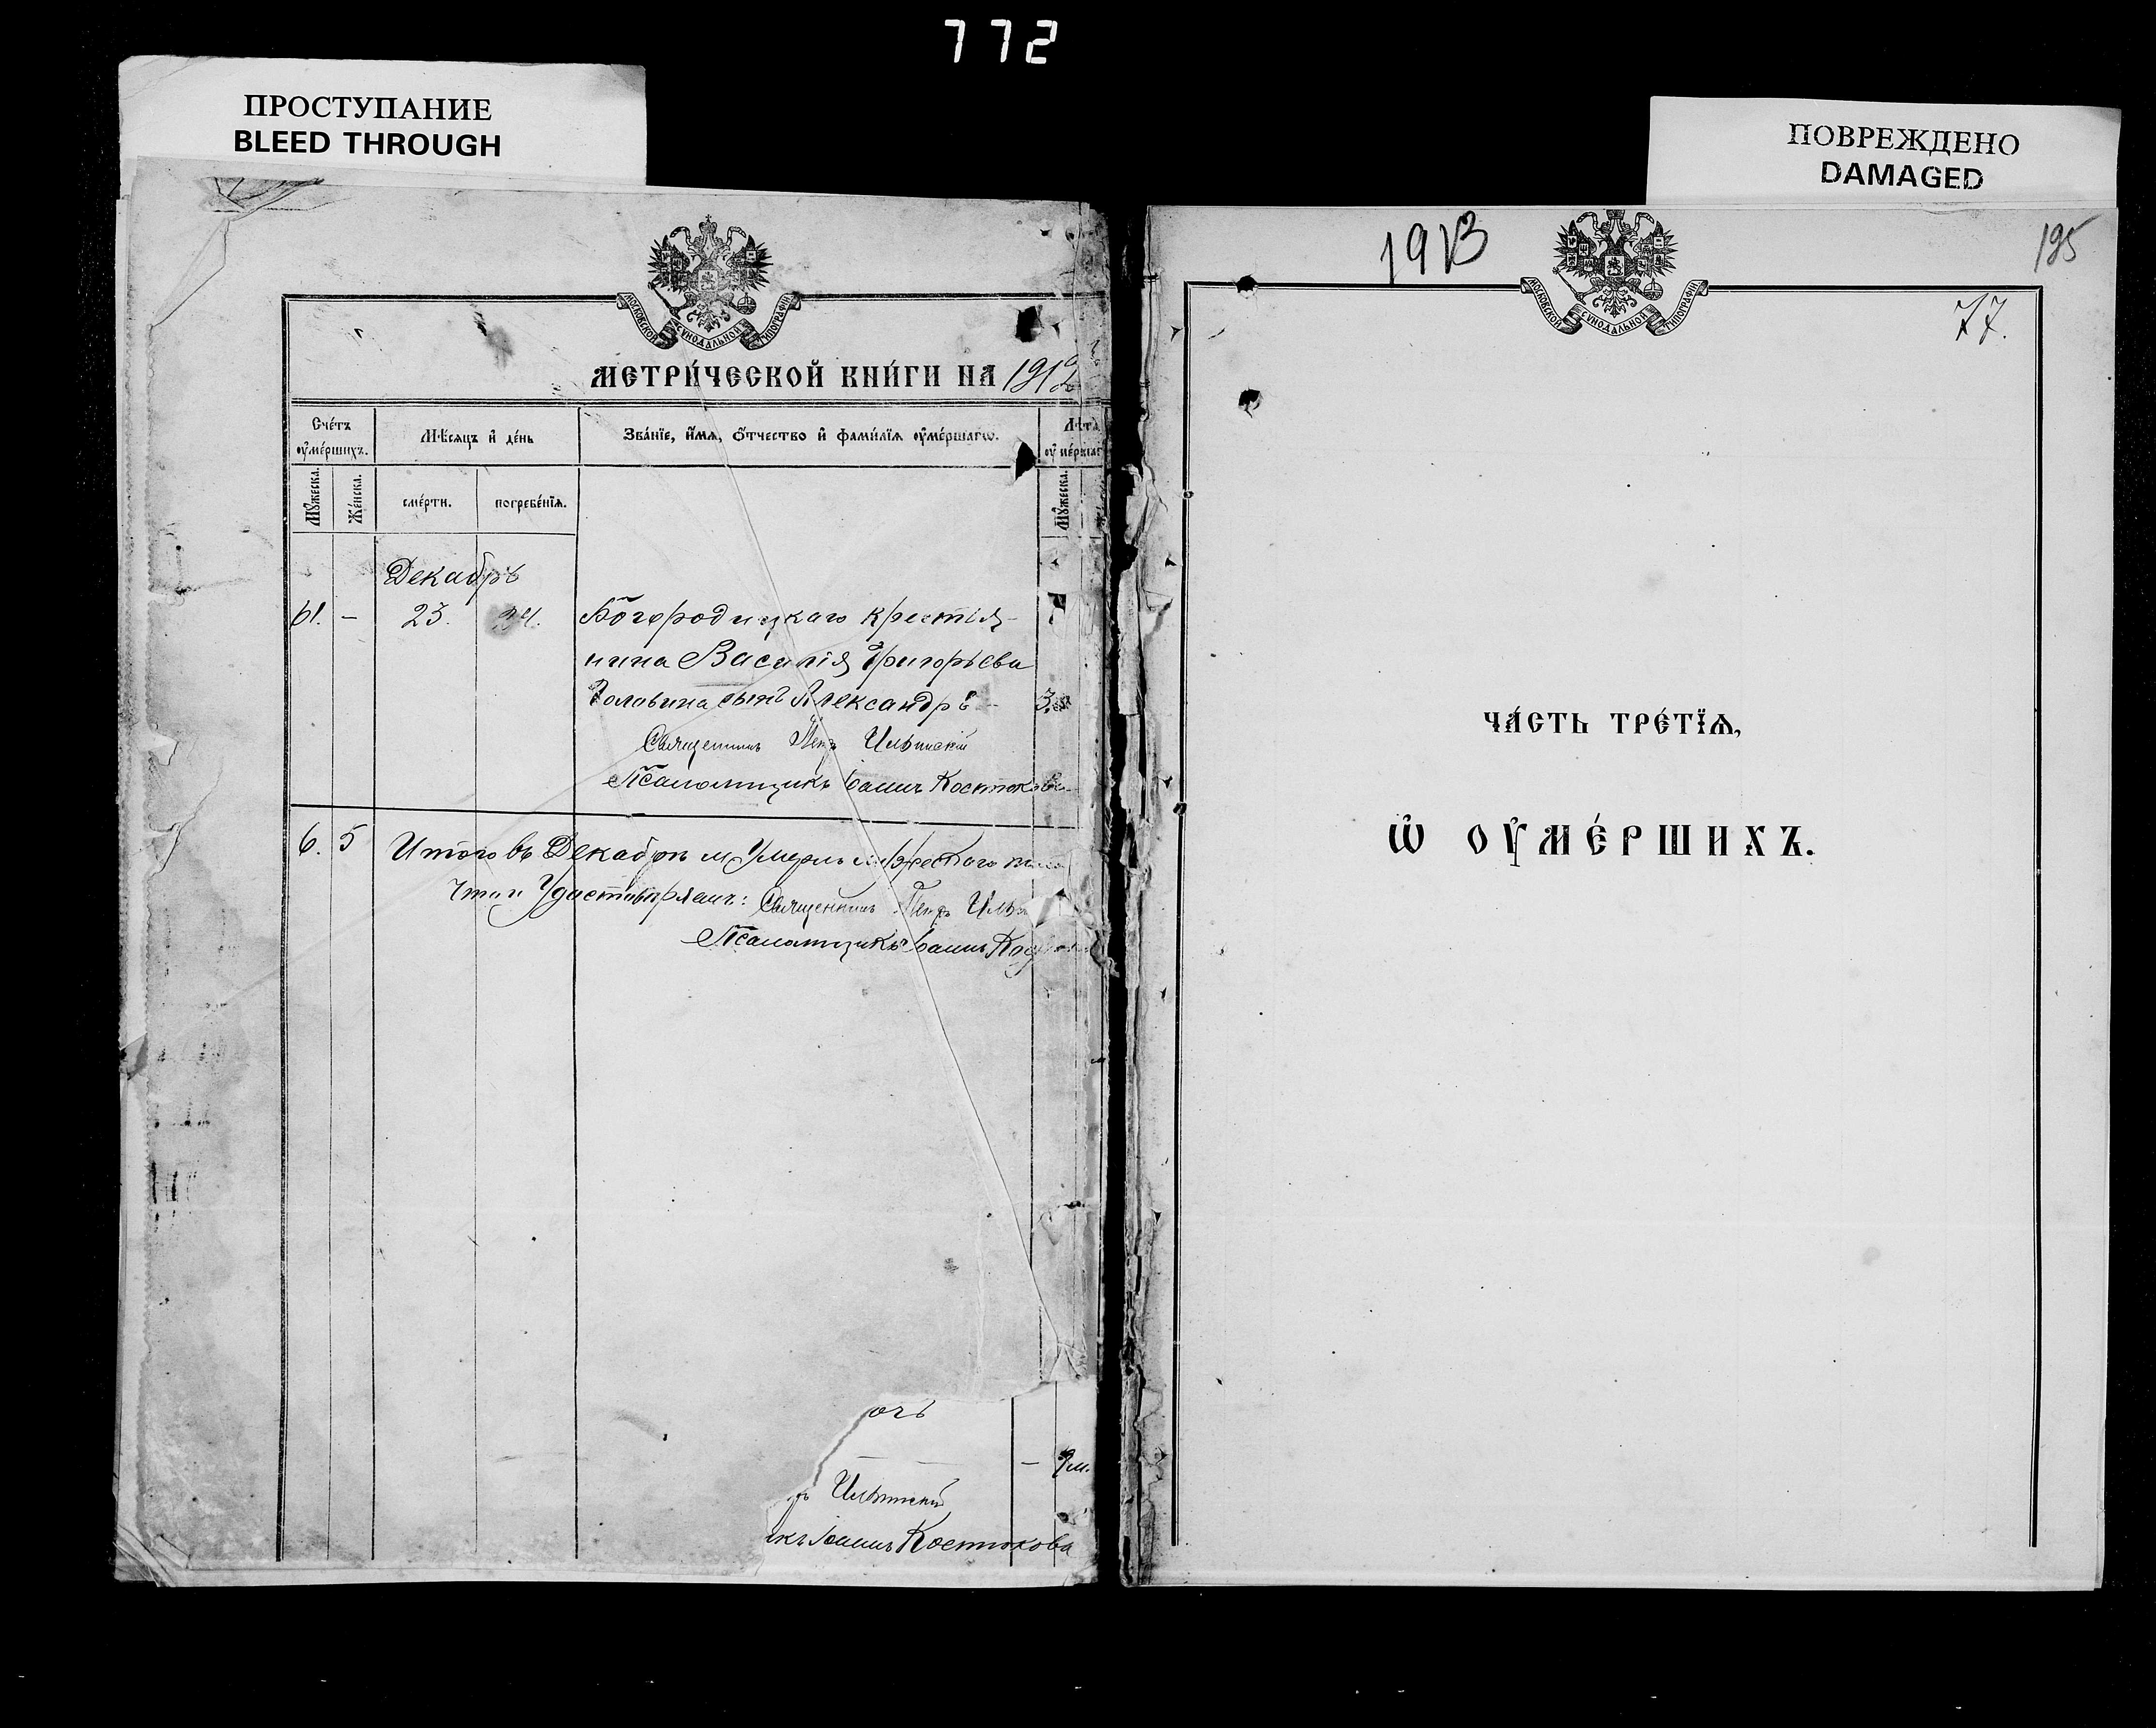 772
ПРОСТУПАНИЕ
BLEED THROUGH
МОСКОВСКОЙ СѴНОДАЛЬНОЙ ТИПОГРАФІИ
МЕТРИ́ЧЕСКОЙ КНИ́ГИ НА 1912
Сче́тъ ᲂу҆ме́ршихъ.
Мѣ́сяцъ и҆ де́нь
Зва́нїе, и҆́мѧ, ѻ҆́тчество и҆ фами́лїѧ ᲂу҆ме́ршагѡ.
Лѣта
Мꙋ́жеска.
Же́нска.
сме́рти.
погребе́нїѧ.
Мꙋ́жеска.
Декабрь
61. - 23. 24. Богородицкаго крестья-
нина Василія Григорьева
Головина сынъ Александръ - 3.
Священникъ Петръ Ильинскій
Псаломщикъ Іоаннъ Костюкова
6. 5 Итого въ Декабрѣ м Умерло мужескаго
Что и Удостовѣряемъ: Священникъ Петръ Иль
Псаломщикъ Іоаннъ
очь
- 9 м.
ръ Ильинскій
икъ Іоаннъ Костюкова
ПОВРЕЖДЕНО
DAMAGED
1913
195
77.
МОСКОВСКОЙ СѴНОДАЛЬНОЙ ТИПОГРАФІИ
ЧА́СТЬ ТРЕ́ТЇѦ,
Ѡ҆ ОУ҆МЕ́РШИХЪ.